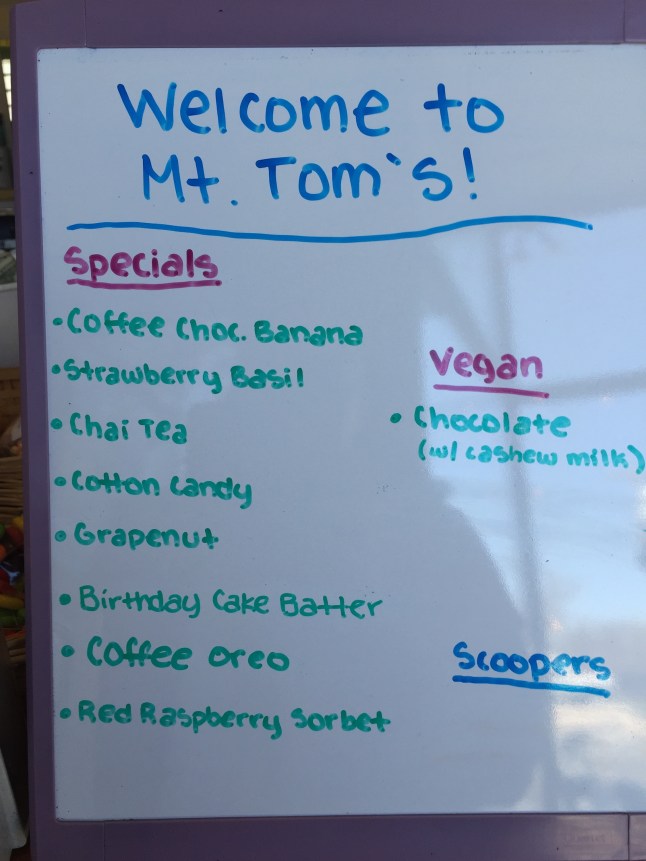 Welcome to
Mt. Tom's!
Specials
• Coffee Choc. Banana
• Strawberry Basil
• Chai Tea
• Cotton Candy
• Grapenut
• Birthday Cake Batter
• Coffee Oreo
• Red Raspberry Sorbet
Vegan
• Chocolate
(w/ cashew milk)
Scoopers